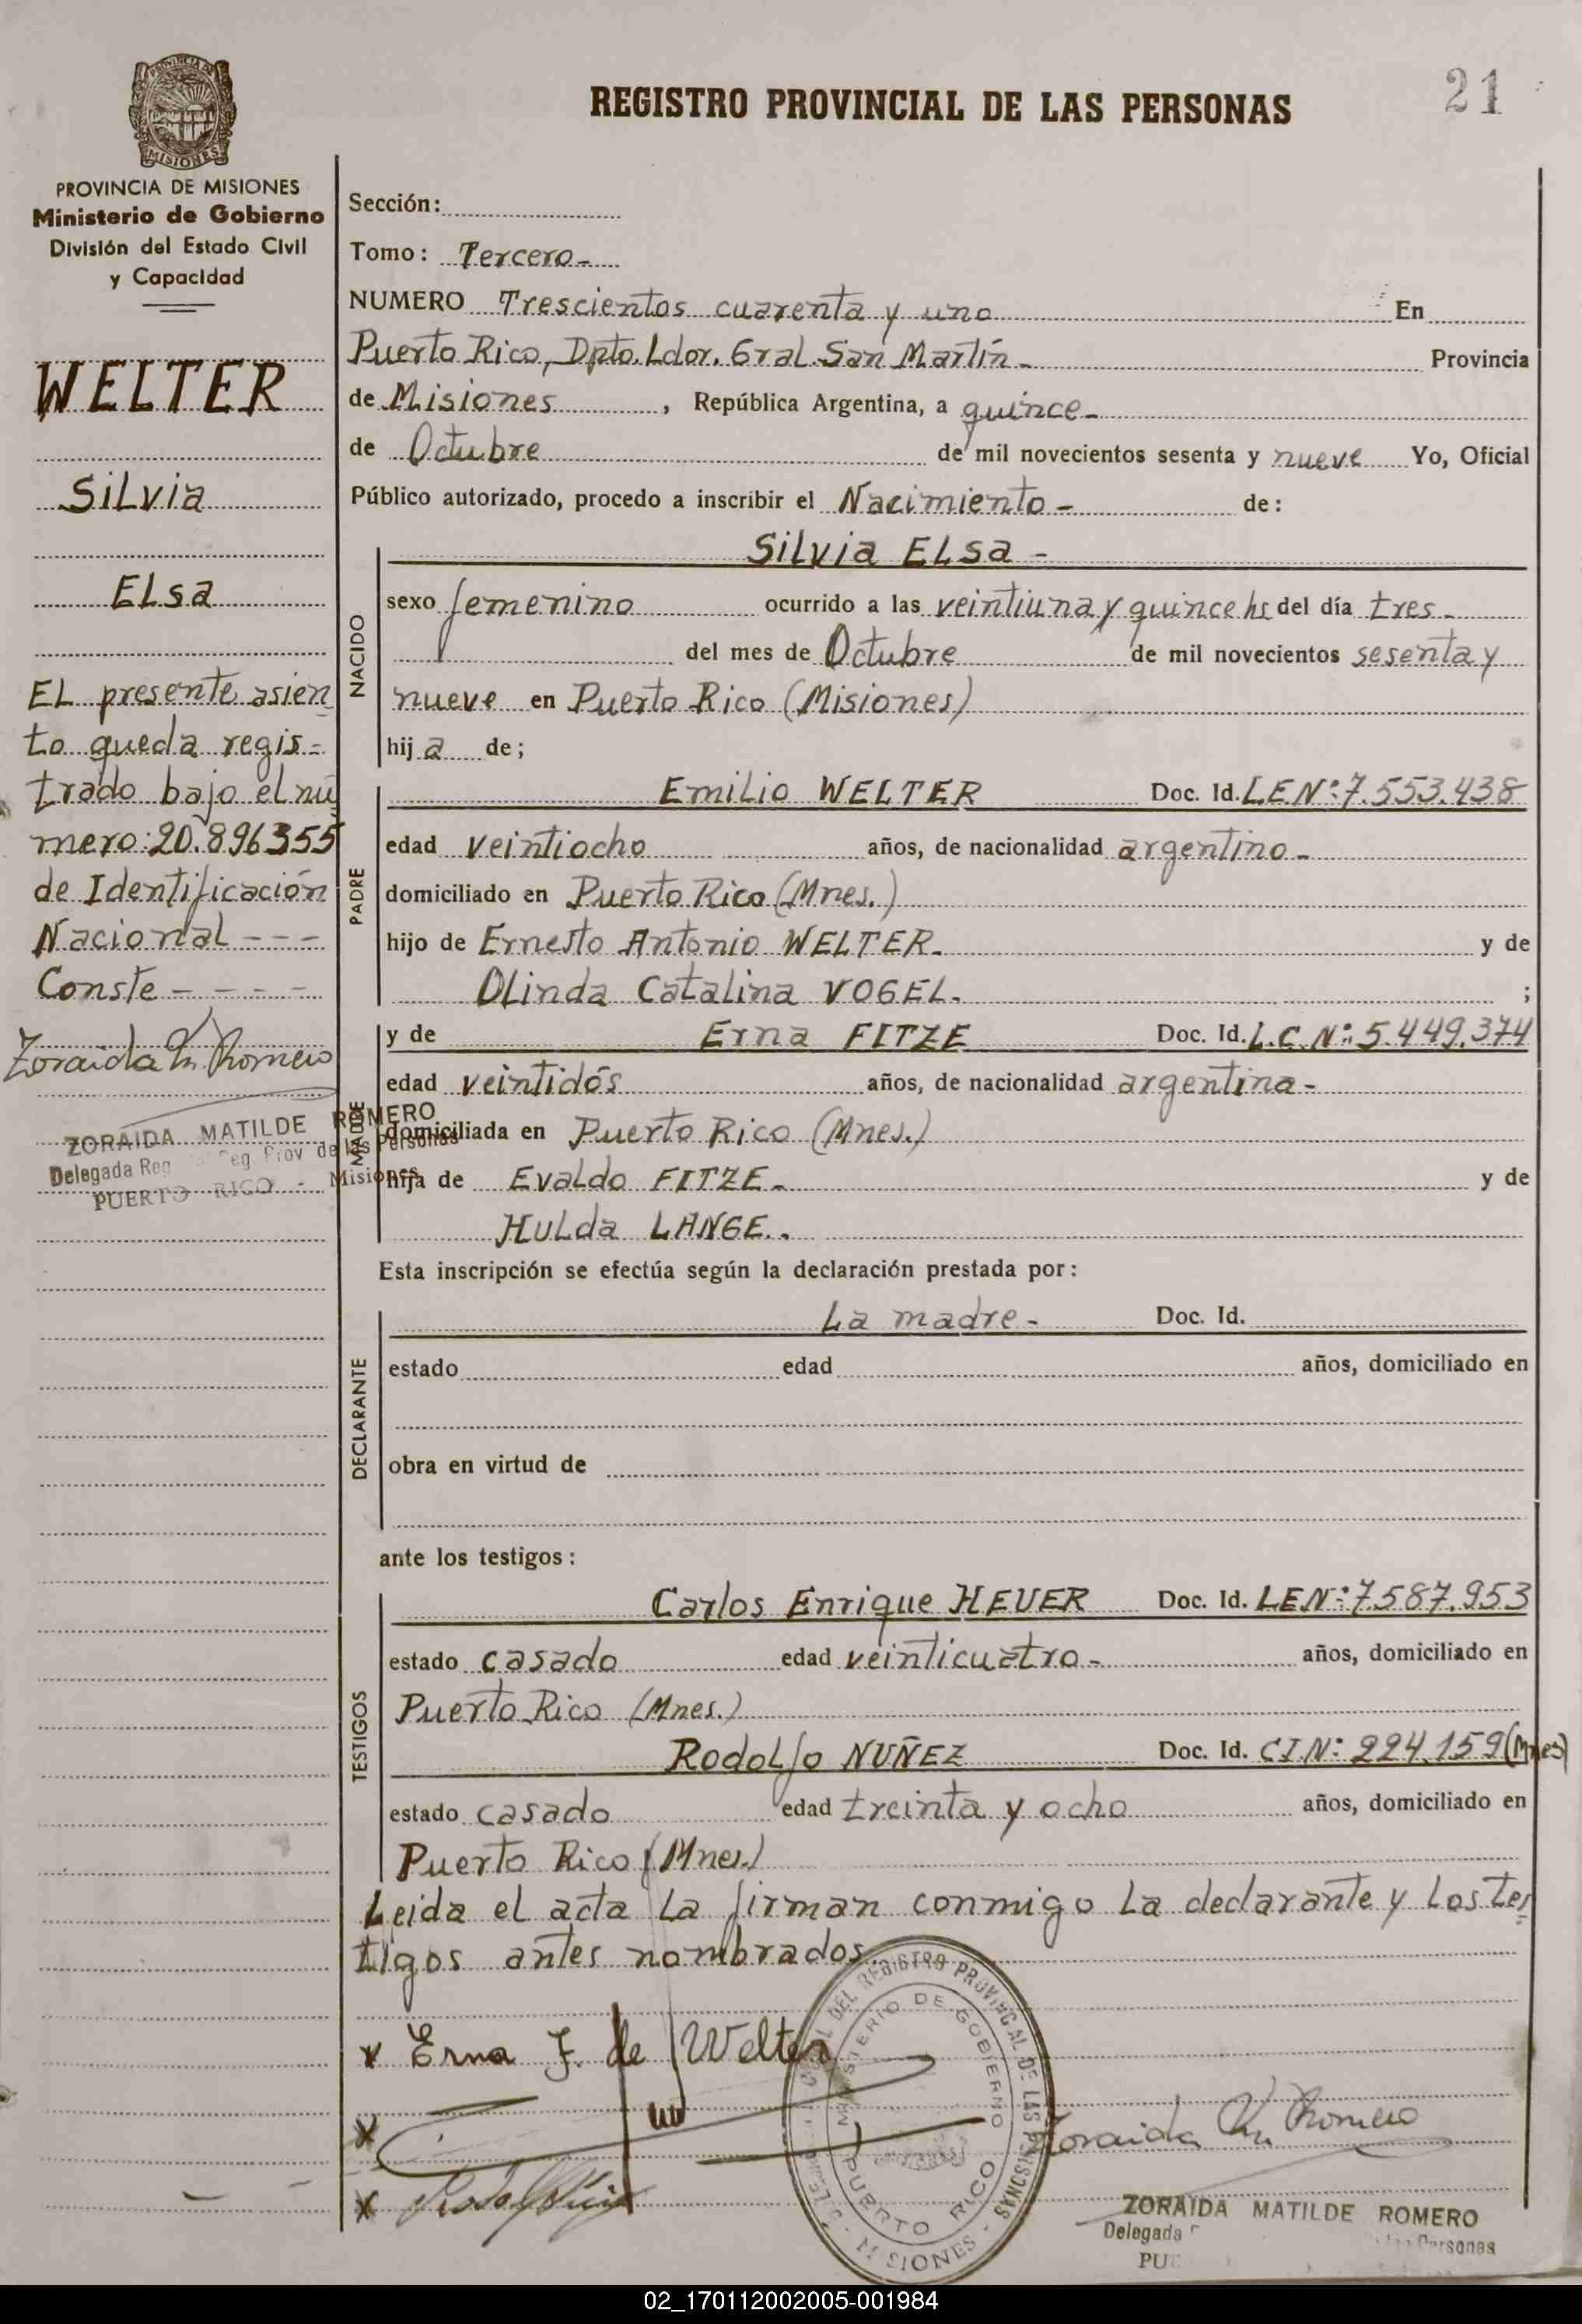 21
REGISTRO PROVINCIAL DE LAS PERSONAS
MISIONES
PROVINCIA DE MISIONES
Ministerio de Gobierno
División del Estado Civil
y Capacidad
WELTER
Silvia
Elsa
El presente asien
to queda regis=
trado bajo el nú
mero: 20.896355
de Identificación
Nacional - - -
Conste - - - -
Zoraida M. Romero
ZORAIDA MATILDE ROMERO
Delegada Reg. Prov de las Personas
PUERTO RICO - Misiones
Sección:
Tomo: Tercero-
NUMERO Trescientos cuarenta y uno En
Puerto Rico, Dpto. Ldor. Gral. San Martín- Provincia
de Misiones, República Argentina, a quince-
de Octubre de mil novecientos sesenta y nueve Yo, Oficial
Público autorizado, procedo a inscribir el Nacimiento- de:
Silvia Elsa-
NACIDO
sexo femenino ocurrido a las veintiuna y quince hs del día tres-
del mes de Octubre de mil novecientos sesenta y
nueve en Puerto Rico (Misiones)
hija de;
PADRE
Emilio WELTER Doc. Id. LEN°: 7.553.438
edad veintiocho años, de nacionalidad argentino-
domiciliado en Puerto Rico (Mnes.)
hijo de Ernesto Antonio WELTER- y de
Olinda Catalina VOGEL. ;
MADRE
y de Erna FITZE Doc. Id. L.C.N°: 5.449.374
edad veintidós años, de nacionalidad argentina-
domiciliada en Puerto Rico (Mnes.)
hija de Evaldo FITZE- y de
Hulda LANGE..
Esta inscripción se efectúa según la declaración prestada por:
DECLARANTE
La madre- Doc. Id.
estado edad años, domiciliado en
obra en virtud de
ante los testigos:
TESTIGOS
Carlos Enrique HEUER Doc. Id. LEN°: 7.587.953
estado casado edad veinticuatro- años, domiciliado en
Puerto Rico (Mnes.)
Rodolfo NUÑEZ Doc. Id. CIN°: 224.159 (Mnes)
estado casado edad treinta y ocho años, domiciliado en
Puerto Rico (Mnes.)
Leida el acta la firman conmigo la declarante y los tes
tigos antes nombrados.
x Erna F. de Welter
x
x
DEL REGISTRO PROVINCIAL DE LAS PERSONAS
MINISTERIO DE GOBIERNO
PUERTO RICO
MISIONES
Zoraida M. Romero
ZORAIDA MATILDE ROMERO
Delegada Personas
02_170112002005-001984